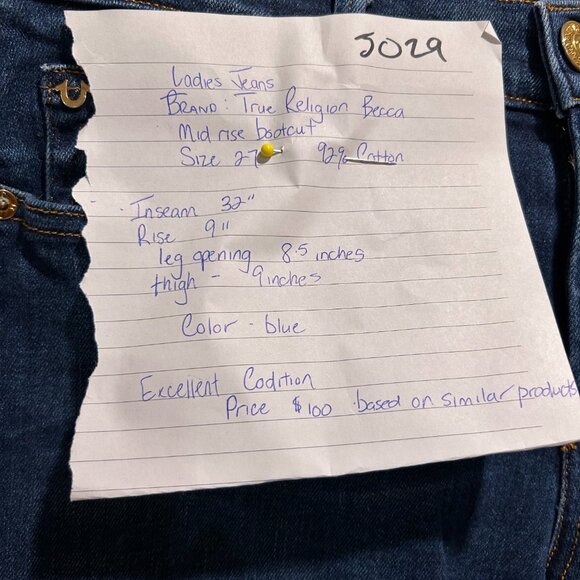 J029
Ladies Jeans
BRAND: True Religion Becca
Mid rise bootcut
Size 27 92% Cotton
Inseam 32"
Rise 9"
leg opening 8.5 inches
thigh - 9 inches
Color - blue
Excellent Codition
Price $100 based on similar products